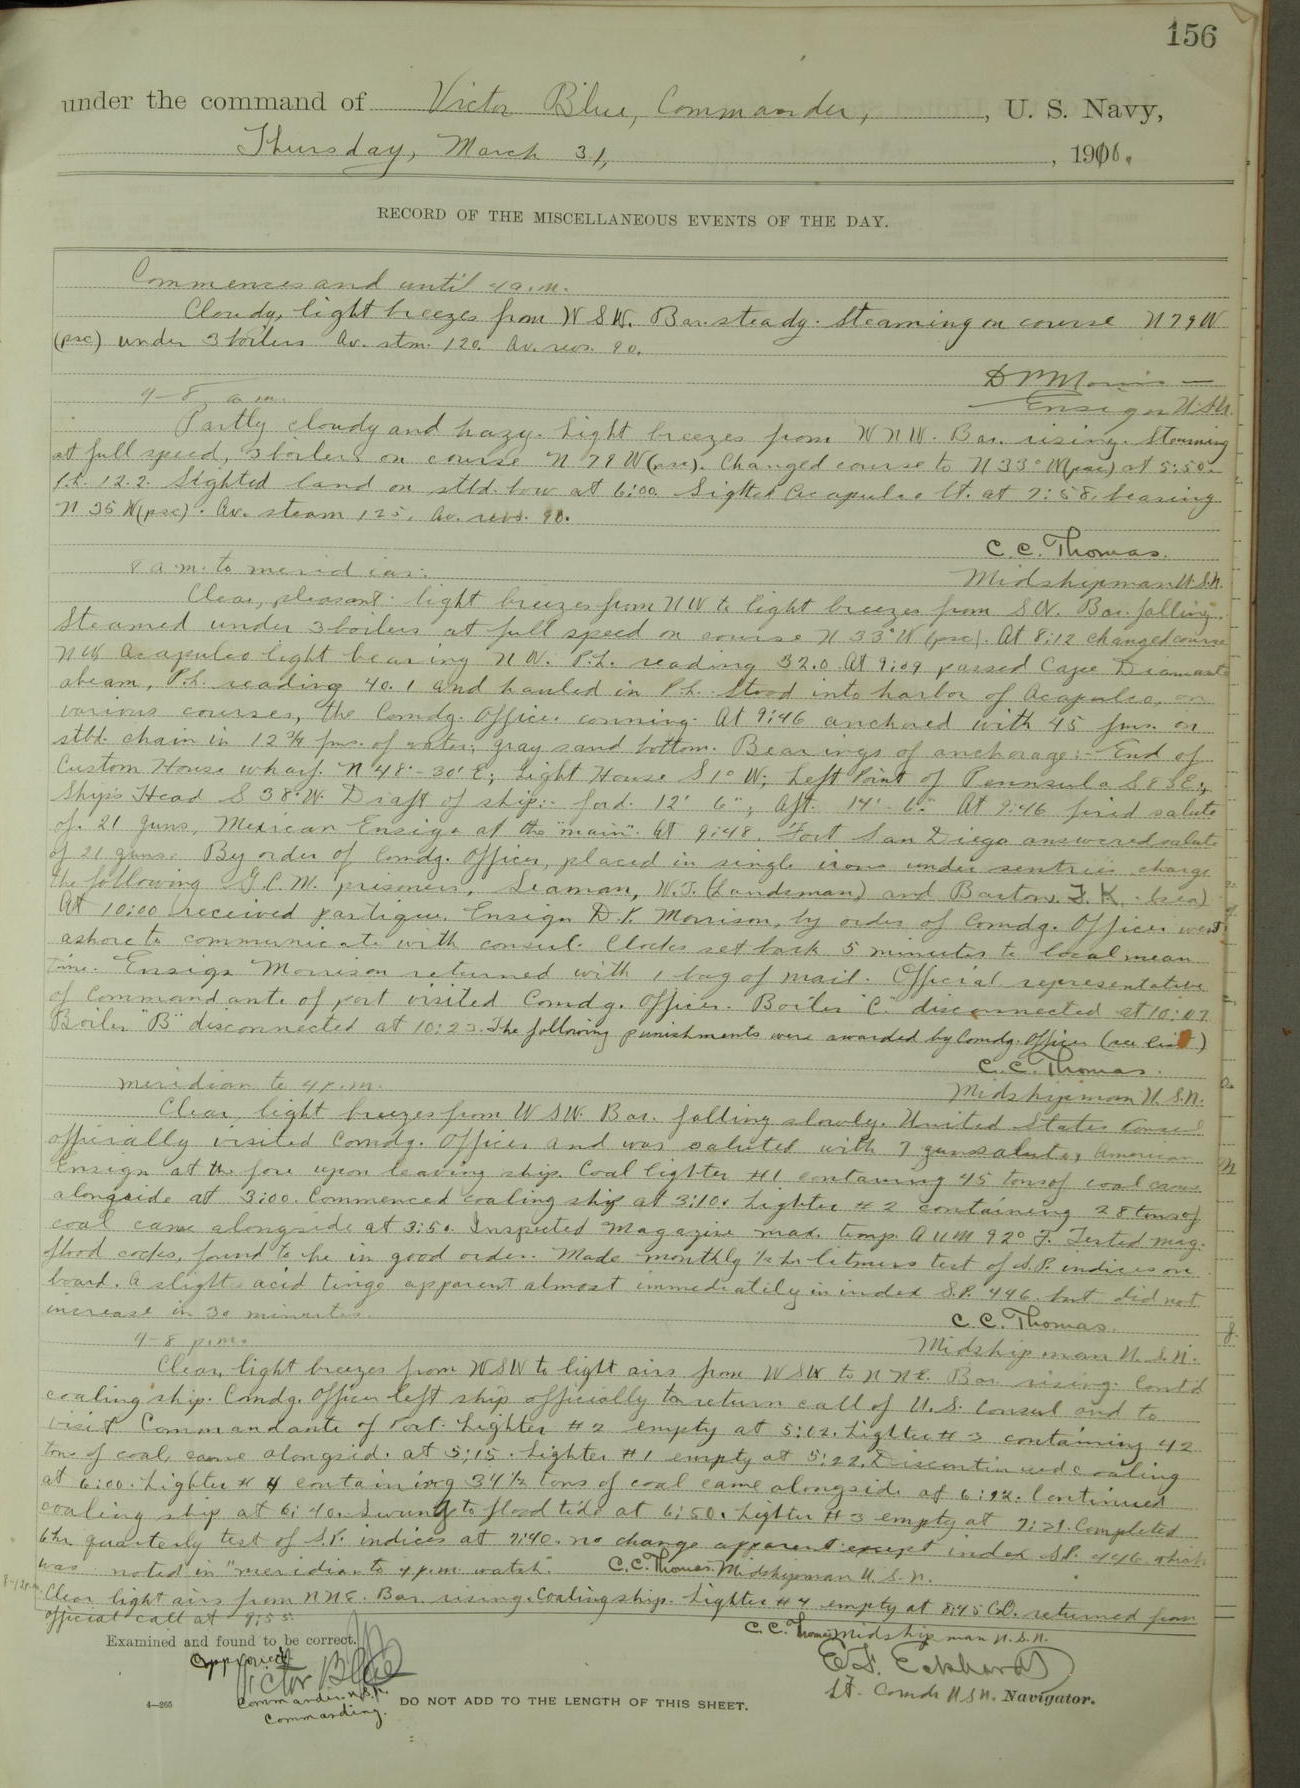 156
under the command of Victor Blue, Commander, , U. S. Navy,
Thursday, March 31, , 1910.
RECORD OF THE MISCELLANEOUS EVENTS OF THE DAY.
Commences and until 4 a.m.
Cloudy, light breezes from W S W. Bar. steady. Steaming on course N 79 W
(psc) under 3 boilers Av. stm. 120. Av. revs. 90.
Ensign U.S.N.
4-8 a.m.
Partly cloudy and hazy. Light breezes from W N W. Bar. rising. Steaming
at full speed, 3 boilers on course N 79 W (psc). Changed course to N 33° W (psc) at 5:50.
P.L. 12.2. Sighted land on stbd. bow at 6:00. Sighted Acapulco Lt. at 7:58, bearing
N 35 W (psc). Av. steam 125, Av. revs. 90.
C. C. Thomas.
Midshipman U.S.N.
8 a.m. to meridian:
Clear, pleasant. light breezes from NW to light breezes from S W. Bar. falling.
Steamed under 3 boilers at full speed on course N 33° W (psc). At 8:12 changed course
N W Acapulco light bearing N W. P.L. reading 32.0. At 9:09 passed Cape Diamante
abeam, P.L. reading 40.1 and hauled in P.L. Stood into harbor of Acapulco, on
various courses, the Comdg. Officer conning. At 9:46 anchored with 45 fms. on
stbd. chain in 12 3/4 fms. of water, gray sand bottom. Bearings of anchorage:- End of
Custom House wharf N 48°-30' E; Light House S 1° W; Left Point of Pennsula S 83 E;
Ship's Head S 38° W. Draft of ship:- ford. 12' 6"; Aft. 14' 6". At 9:46 fired salute
of 21 guns, Mexican Ensign at the "main". At 9:48. Fort San Diego answered salute
of 21 guns. By order of Comdg. Officer, placed in single irons under sentries charge
the following G.C.M. prisoners, Seaman, W.T. (Landsman) and Barton, J. K.
At 10:00 received pratique. Ensign D. P. Morrison, by order of Comdg. Officer went
ashore to communicate with consul. Clocks set back 5 minutes to local mean
time. Ensign Morrison returned with 1 bag of mail. Official representative
of Commandante of port visited Comdg. Officer. Boiler "C" disconnected at 10:07
Boiler "B" disconnected at 10:23. The following punishments were awarded by Comdg. Officer (see list)
C. C. Thomas.
Midshipman U.S.N.
meridian to 4 p.m.
Clear, light breezes from W S W. Bar. falling slowly. United States Consul
officially visited Comdg. Officer and was saluted with 7 gun salute, American
Ensign at the fore upon leaving ship. Coal lighter #1 containing 45 tons of coal came
alongside at 3:00. Commenced coaling ship at 3:10. Lighter #2 containing 28 tons of
coal came alongside at 3:50. Inspected Magazine max. temp. A 11 M 92° F. Tested mag.
flood cocks, found to be in good order. Made monthly 1/2 hr litmus test of S.P. indices on
board. A slight acid tinge apparent almost immediately in index S.P. 446 but did not
increase in 30 minutes.
C. C. Thomas.
Midshipman U.S.N.
4-8 p.m.
Clear, light breezes from W S W to light airs from W S W to N N E. Bar. rising. Cont'd
coaling ship. Comdg. Officer left ship officially to return call of U.S. Consul and to
visit Commandante of Port. Lighter #2 empty at 5:02. Lighter #3 containing 42
tons of coal, came alongside at 5:15. Lighter #1 empty at 5:22. Discontinued coaling
at 6:00. Lighter #4 containing 34 1/2 tons of coal came alongside at 6:22. Continued
coaling ship at 6:40. Swung to flood tide at 6:50. Lighter #3 empty at 7:21. Completed
6 hr. quarterly test of S.P. indices at 7:40. no change apparent except index S.P. 446 which
was noted in "meridian to 4 p.m. watch". C. C. Thomas. Midshipman U.S.N.
8-12 p.m.
Clear light airs from N N E. Bar. rising. Coaling ship. Lighter #4 empty at 8:45 C.O. returned from
official call at 9:55.
C. C. Thomas Midshipman U.S.N.
Examined and found to be correct.
Approved
Victor Blue
Commander U.S.N.
Commanding.
E. F. Eckhardt
Lt. Comdr U.S.N. Navigator.
4—265
DO NOT ADD TO THE LENGTH OF THIS SHEET.